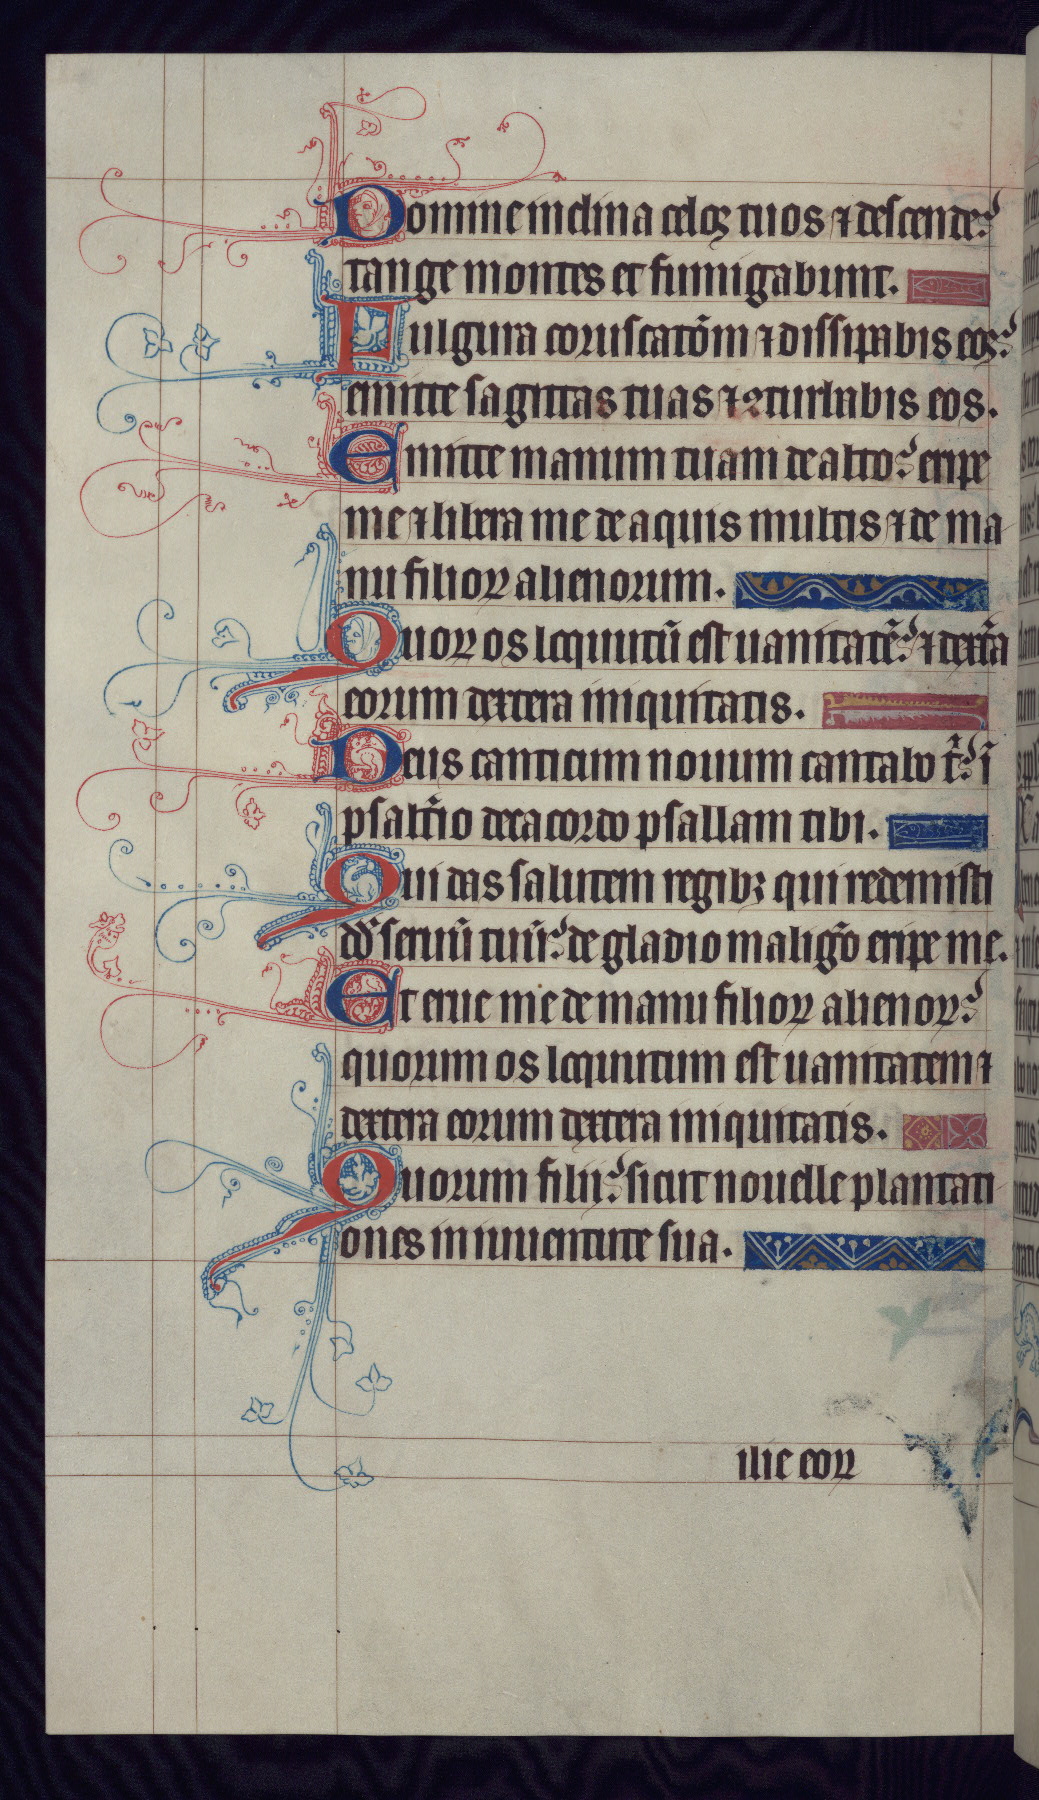 Domine inclina celoꝝ tuos ⁊ descende:
tange montes et fumigabunt.
Fulgura coruscatõm ⁊ dissipabis eos:
emitte sagittas tuas ⁊ ꝯturbabis eos.
Emitte manum tuam de alto: eripe
me ⁊ libera me de aquis multis ⁊ de ma
nu filioꝝ alienorum.
Quoꝝ os locutũ est uanitatẽ: ⁊ dextẽa
eorum dextera iniquitatis.
Deus canticum nouum cantabo t̃: ĩ
psalt̃io decacordo psallam tibi.
Qui das salutem regibꝫ qui redemisti
dd̃ seruũ tuũ: de gladio malig̃o eripe me.
Et erue me de manu filioꝝ alienoꝝ:
quorum os locutum est uanitatem ⁊
dextera eorum dextera iniquitatis.
Quorum filii: sicut nouelle plantati
ones in iuuentute sua.
ilie eoꝝ